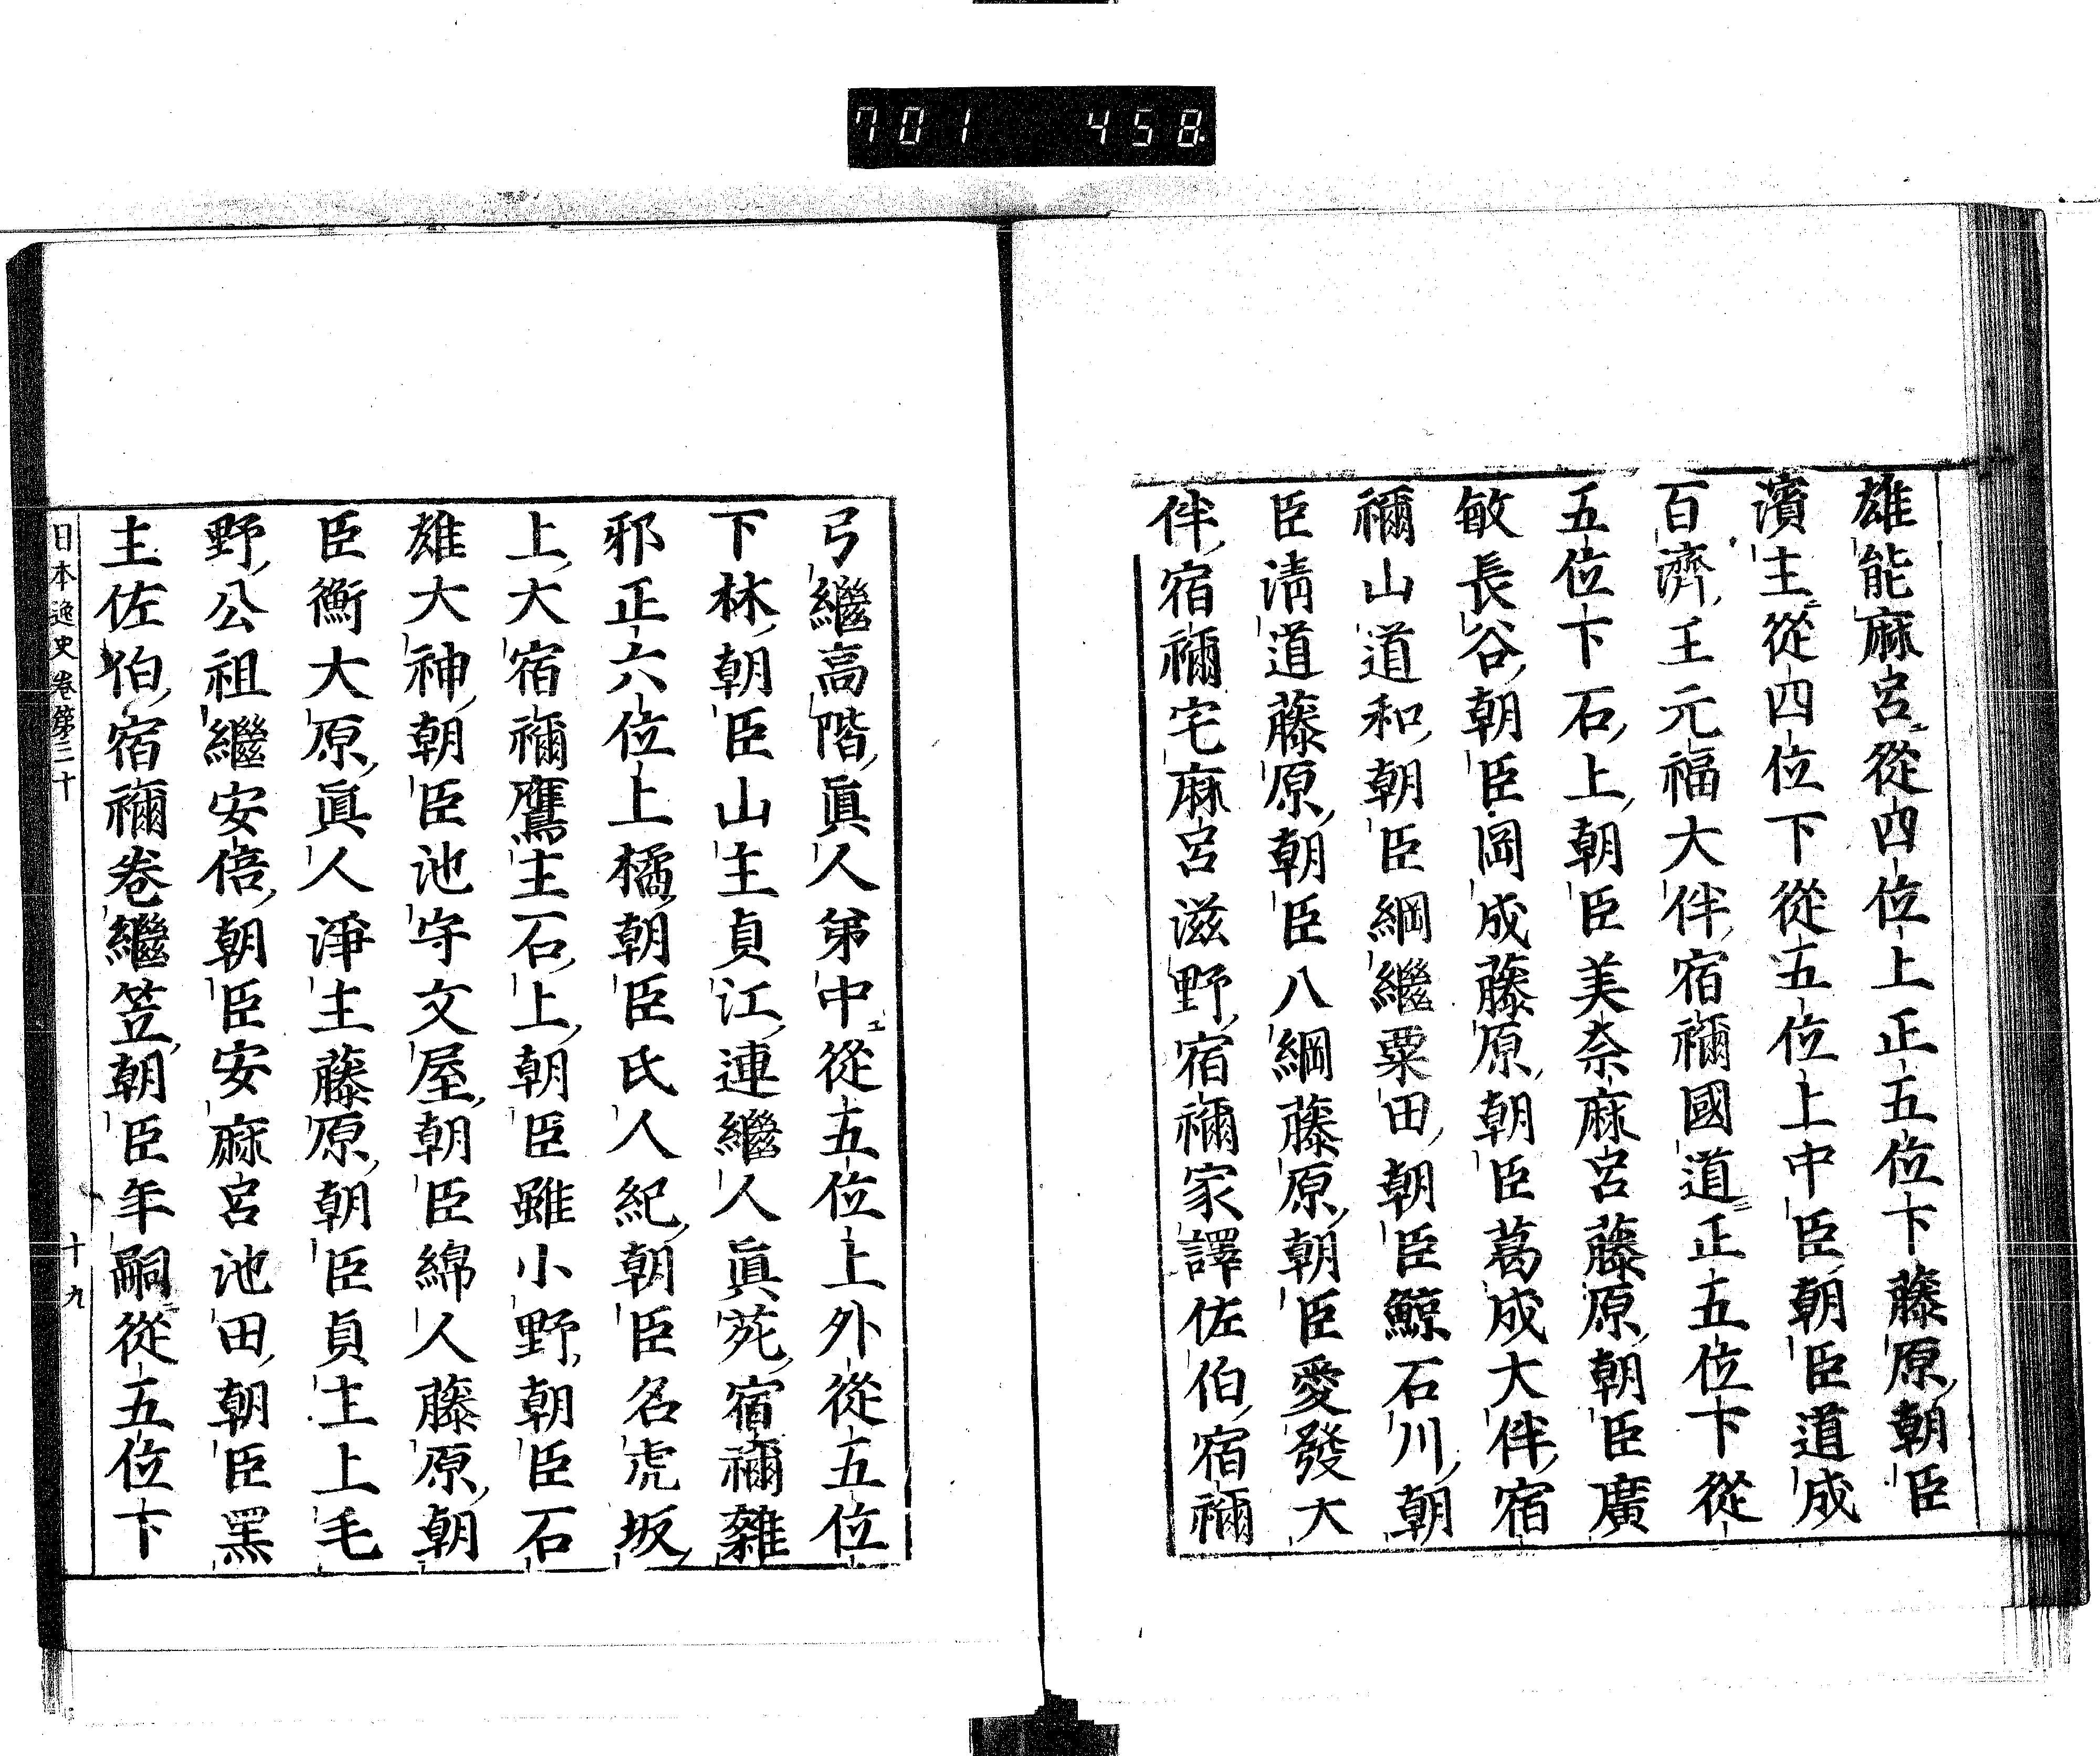 701 458
雄能麻呂從四位上正五位下藤原朝臣
濱主從四位下從五位上中臣朝臣道成
百濟王元福大伴宿禰國道正五位下從
五位下石上朝臣美奈麻呂藤原朝臣廣
敏長谷朝臣岡成藤原朝臣葛成大伴宿
禰山道和朝臣綱繼粟田朝臣鯨石川朝
臣淸道藤原朝臣八綱藤原朝臣愛發大
伴宿禰宅麻呂滋野宿禰家譯佐伯宿禰
弓繼高階眞人弟中從五位上外從五位
下林朝臣山主貞江連繼人眞苑宿禰雜
邪正六位上橘朝臣氏人紀朝臣名虎坂
上大宿禰鷹主石上朝臣雖小野朝臣石
雄大神朝臣池守文屋朝臣綿人藤原朝
臣衞大原眞人淨主藤原朝臣貞主上毛
野公祖繼安倍朝臣安麻呂池田朝臣黑
主佐伯宿禰卷繼笠朝臣年嗣從五位下
日本逸史卷第二十 十九